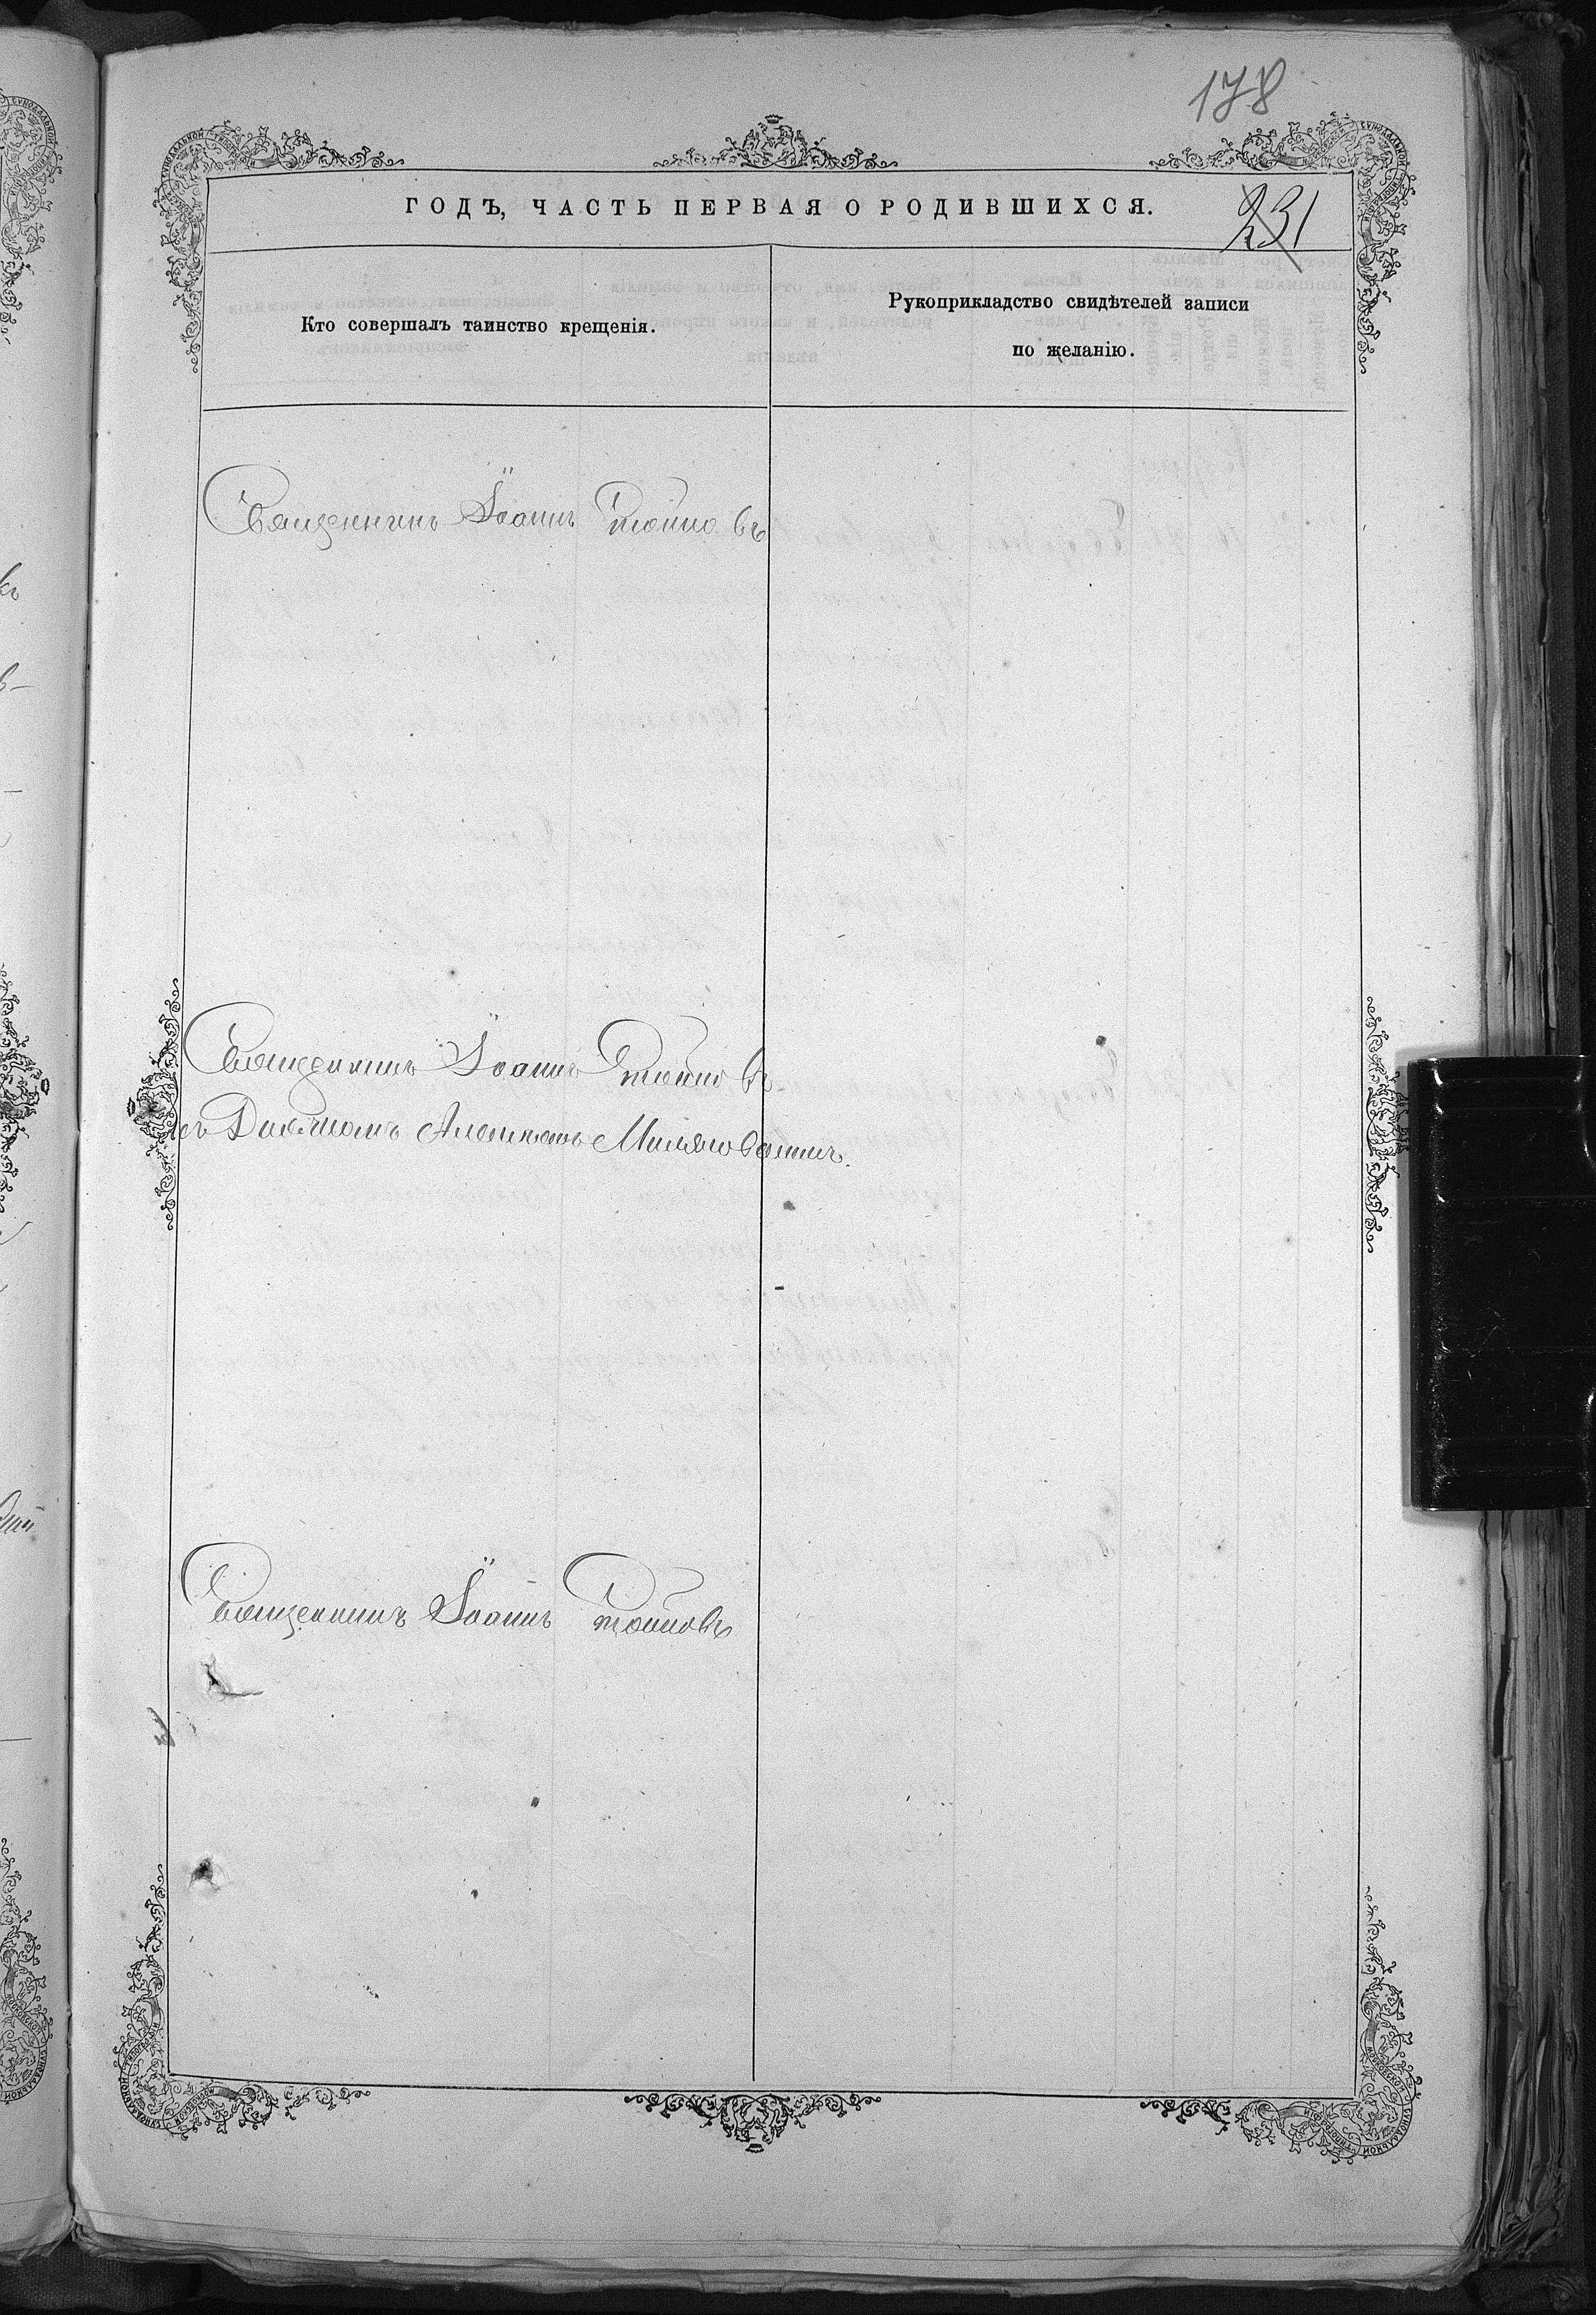 178
ГОДЪ, ЧАСТЬ ПЕРВАЯ О РОДИВШИХСЯ.
231
Кто совершалъ таинство крещенія.
Рукоприкладство свидѣтелей записи
по желанію.
Священникъ Іоаннъ Стоиновъ
Священникъ Іоаннъ Стоиновъ
съ Діакономъ
Священникъ Іоаннъ Стоиновъ